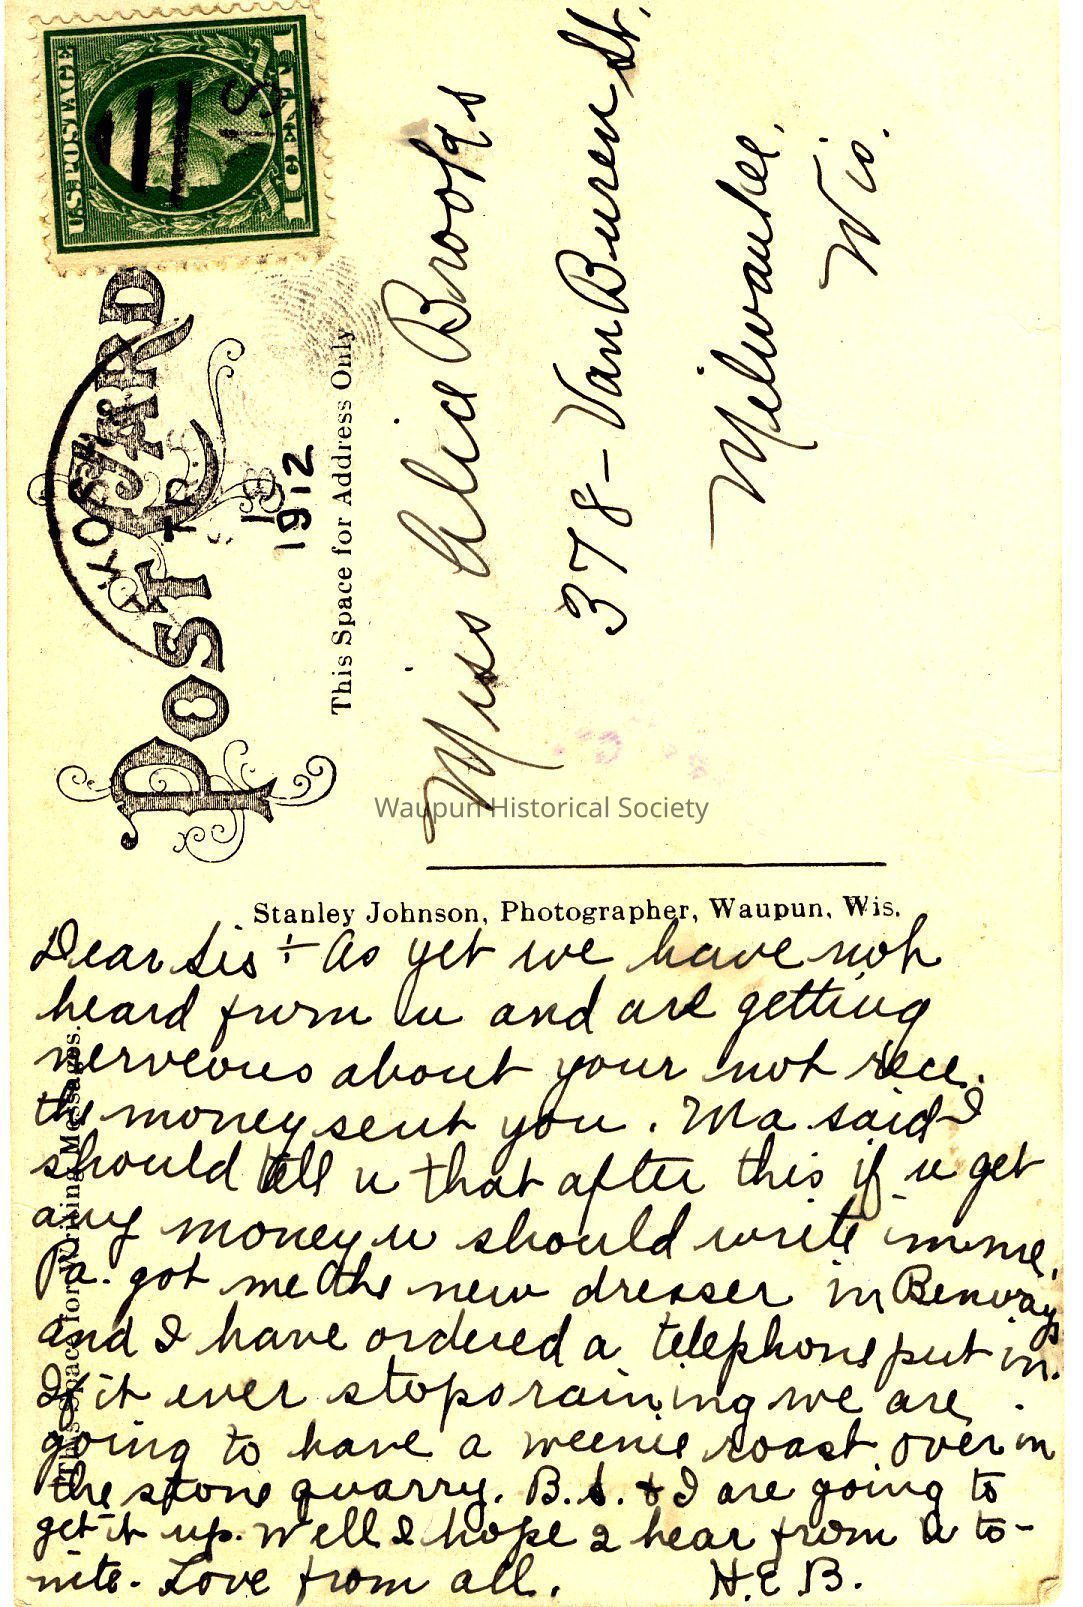 U.S. POSTAGE
1 CENT 1
POST CARD
1912
This Space for Address Only
Miss Alice Brooks
378 - Van Buren St.
Milwaukee,
Wis.
Waupun Historical Society
Stanley Johnson, Photographer, Waupun, Wis.
This Space for Writing Messages.
Dear Sis ÷ As yet we have not
heard from u and are getting
nerveous about your not rece.
the money sent you. Ma said I
should tell u that after this if u get
any money u should write imme.
Pa. got me the new dresser in Benways
and I have ordered a telephone put in.
If it ever stops raining we are
going to have a weenie roast over in
the stone quarry. B.S. & I are going to
get it up. Well I hope 2 hear from u to-
nite. Love from all. H.E.B.